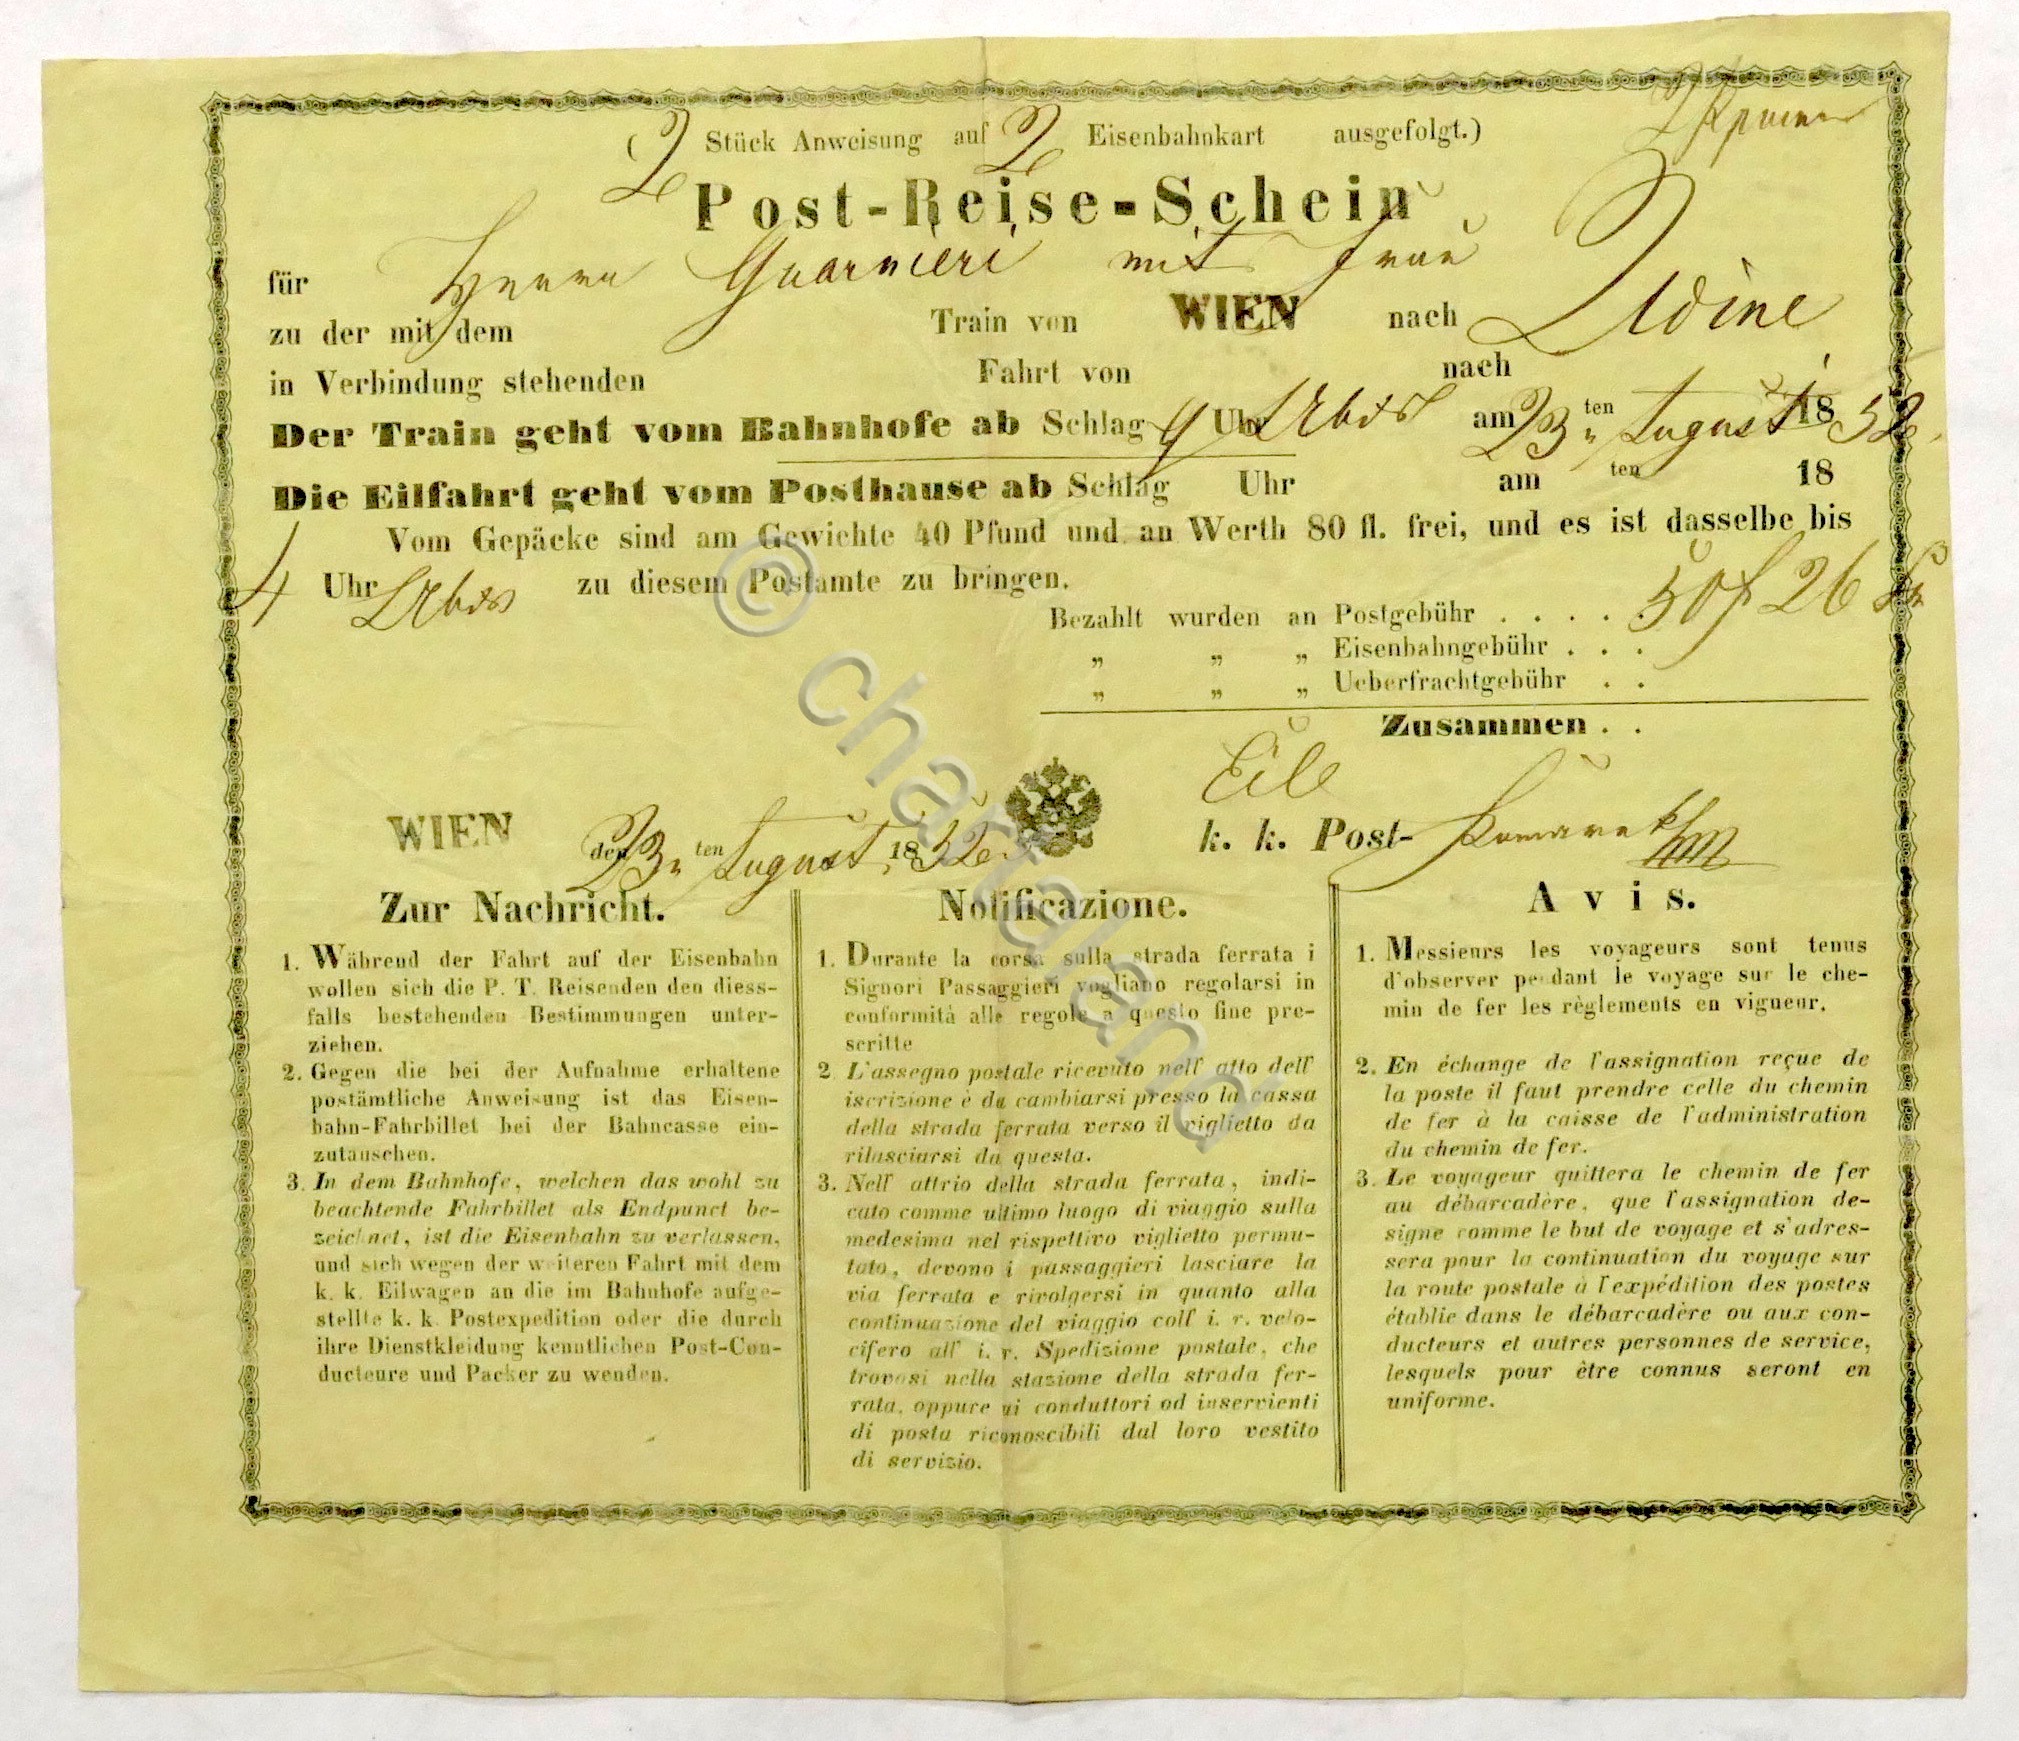 ( 2 Stück Anweisung auf 2 Eisenbahnkart ausgefolgt.)
Post-Reise-Schein
für Herrn Guarnieri mit Frau
zu der mit dem Train von WIEN nach Udine
in Verbindung stehenden Fahrt von nach
Der Train geht vom Bahnhofe ab Schlag 9 Uhr Abds am 23 ten August 1852
Die Eilfahrt geht vom Posthause ab Schlag Uhr am ten 18
Vom Gepäcke sind am Gewichte 40 Pfund und an Werth 80 fl. frei, und es ist dasselbe bis
4 Uhr Abds zu diesem Postamte zu bringen.
Bezahlt wurden an Postgebühr . . . . . 50 f 26
„ „ „ Eisenbahngebühr . . .
„ „ „ Ueberfrachtgebühr . .
Zusammen . .
Eile
WIEN den 23 ten August 1852.
k. k. Post-
Zur Nachricht.
1. Während der Fahrt auf der Eisenbahn
wollen sich die P. T. Reisenden den diess-
falls bestehenden Bestimmungen unter-
ziehen.
2. Gegen die bei der Aufnahme erhaltene
postämtliche Anweisung ist das Eisen-
bahn-Fahrbillet bei der Bahncasse ein-
zutauschen.
3. In dem Bahnhofe, welchen das wohl zu
beachtende Fahrbillet als Endpunct be-
zeichnet, ist die Eisenbahn zu verlassen,
und sich wegen der weiteren Fahrt mit dem
k. k. Eilwagen an die im Bahnhofe aufge-
stellte k. k. Postexpedition oder die durch
ihre Dienstkleidung kenntlichen Post-Con-
ducteure und Packer zu wenden.
Notificazione.
1. Durante la corsa sulla strada ferrata i
Signori Passaggieri vogliano regolarsi in
conformità alle regole a questo fine pre-
scritte
2 L'assegno postale ricevuto nell' atto dell'
iscrizione è da cambiarsi presso la cassa
della strada ferrata verso il viglietto da
rilasciarsi da questa.
3. Nell' attrio della strada ferrata, indi-
cato comme ultimo luogo di viaggio sulla
medesima nel rispettivo viglietto permu-
tato, devono i passaggieri lasciare la
via ferrata e rivolgersi in quanto alla
continuazione del viaggio coll' i. r. velo-
cifero all' i. r. Spedizione postale, che
trovasi nella stazione della strada fer-
rata, oppure ai conduttori od inservienti
di posta riconoscibili dal loro vestito
di servizio.
Avis.
1. Messieurs les voyageurs sont tenus
d'observer pendant le voyage sur le che-
min de fer les règlements en vigueur.
2. En échange de l'assignation reçue de
la poste il faut prendre celle du chemin
de fer à la caisse de l'administration
du chemin de fer.
3. Le voyageur quittera le chemin de fer
au débarcadère, que l'assignation de-
signe comme le but de voyage et s'adres-
sera pour la continuation du voyage sur
la route postale à l'expédition des postes
établie dans le débarcadère ou aux con-
ducteurs et autres personnes de service,
lesquels pour être connus seront en
uniforme.
© chartaland